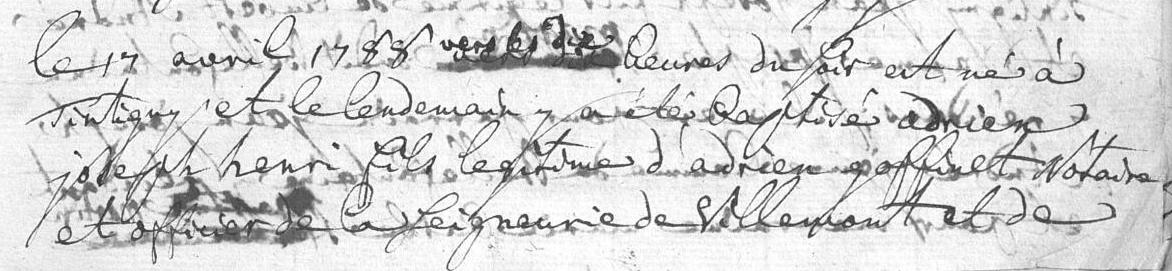 le 17 avril 1788 vers les dix heures du soir est né à
Tintigny et le lendemain y a été baptisé adrien
joseph henri fils legitime d'adrien goffinet Notaire
et officier de la seigneurie de Villemont et de